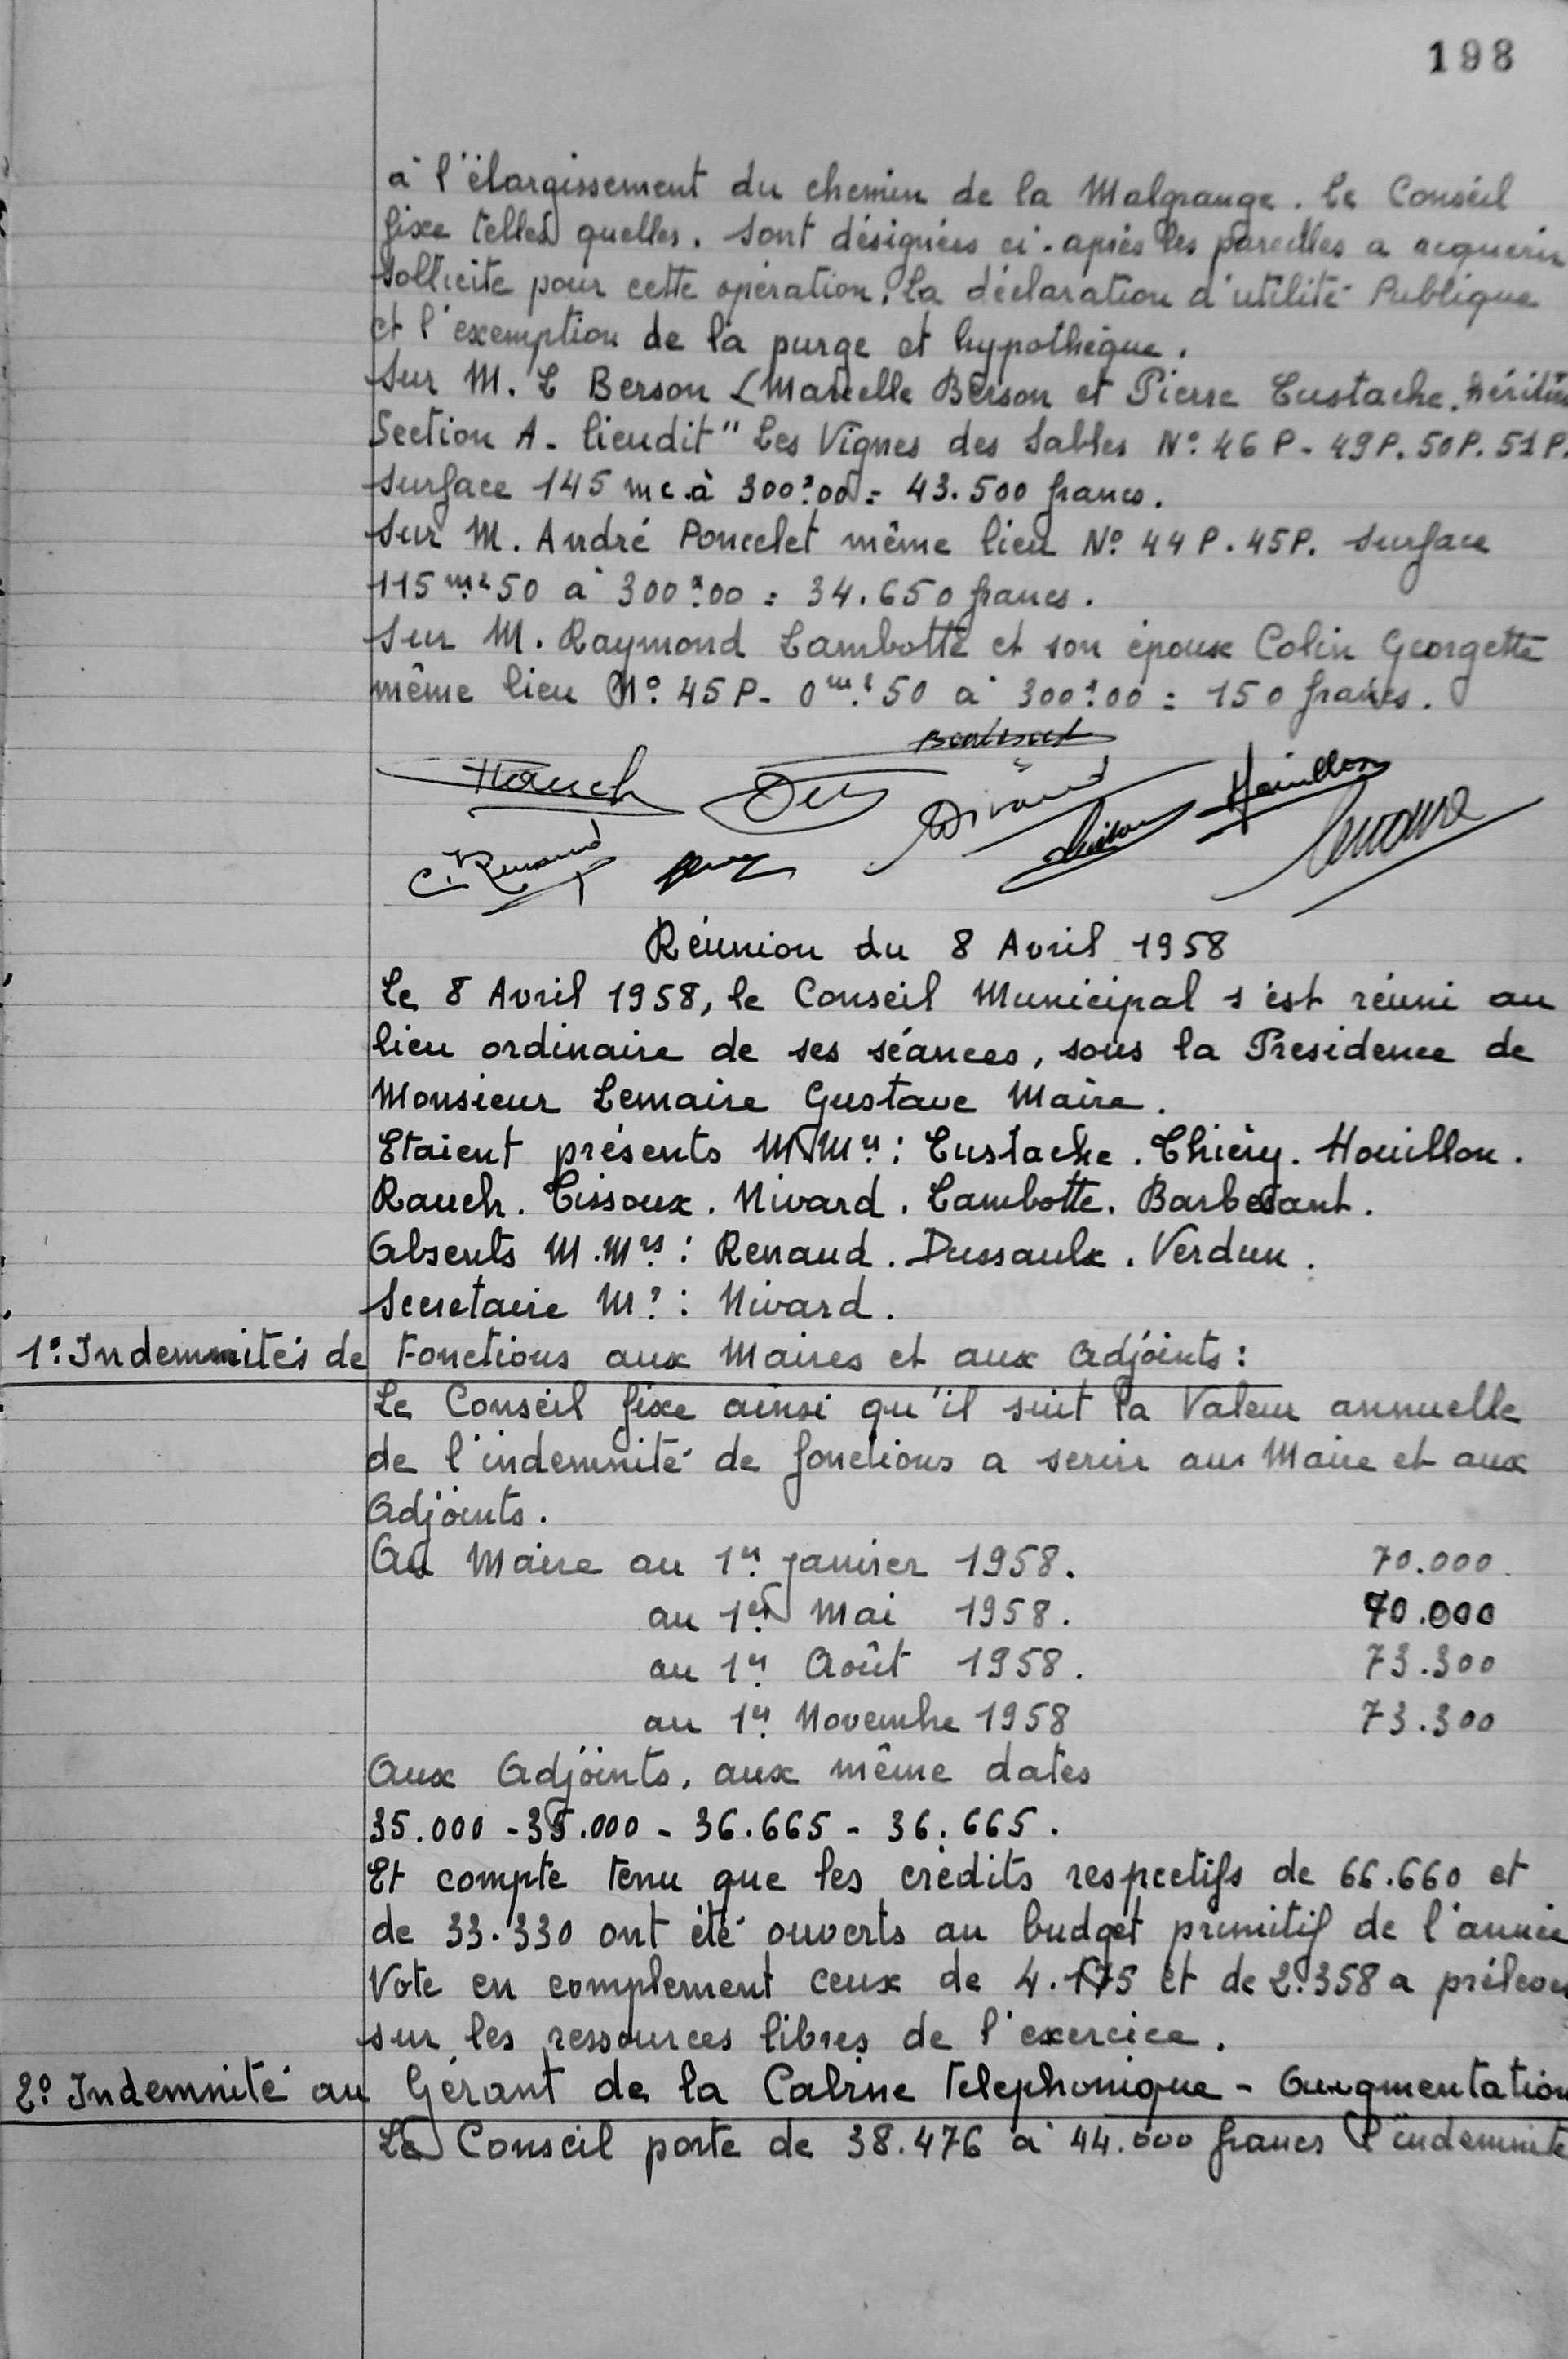 198
à l'élargissement du chemin de la Malgrange. Le Conseil
fixe telles quelles. sont désignées ci-après les parcelles a acquerir
sollicite pour cette opération, la déclaration d'utilité Publique
et l'exemption de la purge et hypothèque.
Sur M. L Berson (Marcelle Berson et Pierre Eustache. héritiers
Section A - lieudit " Les Vignes des Sables N° 46 P - 49 P. 50 P. 51 P.
surface 145 mc. à 300f00 = 43.500 francs.
Sur M. André Poncelet même lieu N° 44 P. 45 P. surface
115 m2 50 à 300f00 = 34.650 francs.
Sur M. Raymond Lambotte et son époux Colin Georgette
même lieu N° 45 P - 0 m2 50 à 300f00 = 150 francs.
Rauch
Nivard
Houillon
C. Renaud
Lemaire
Réunion du 8 Avril 1958
Le 8 Avril 1958, le Conseil Municipal s'est réuni au
lieu ordinaire de ses séances, sous la Presidence de
Monsieur Lemaire Gustave Maire.
Etaient présents M Mrs : Eustache. Thiéry. Houillon.
Rauch. Tissoux. Nivard. Lambotte. Barbesant.
Absents M.Mrs : Renaud. Dussaulx. Verdun.
Secretaire Mr : Nivard.
1° Indemnités de Fonctions aux Maires et aux Adjoints :
Le Conseil fixe ainsi qu'il suit la Valeur annuelle
de l'indemnité de fonctions a servir au Maire et aux
Adjoints.
Au Maire au 1er janvier 1958. 70.000
au 1er Mai 1958. 70.000
au 1er Août 1958. 73.300
au 1er Novembre 1958 73.300
Aux Adjoints, aux même dates
35.000 - 35.000 - 36.665 - 36.665.
Et compte tenu que les crédits respectifs de 66.660 et
de 33.330 ont été ouverts au budget primitif de l'année
Vote en complement ceux de 4.175 et de 2.358 a prélever
sur les ressources libres de l'exercice.
2° Indemnité au Gérant de la Cabine telephonique - Augmentation
Le Conseil porte de 38.476 à 44.000 francs l'indemnité